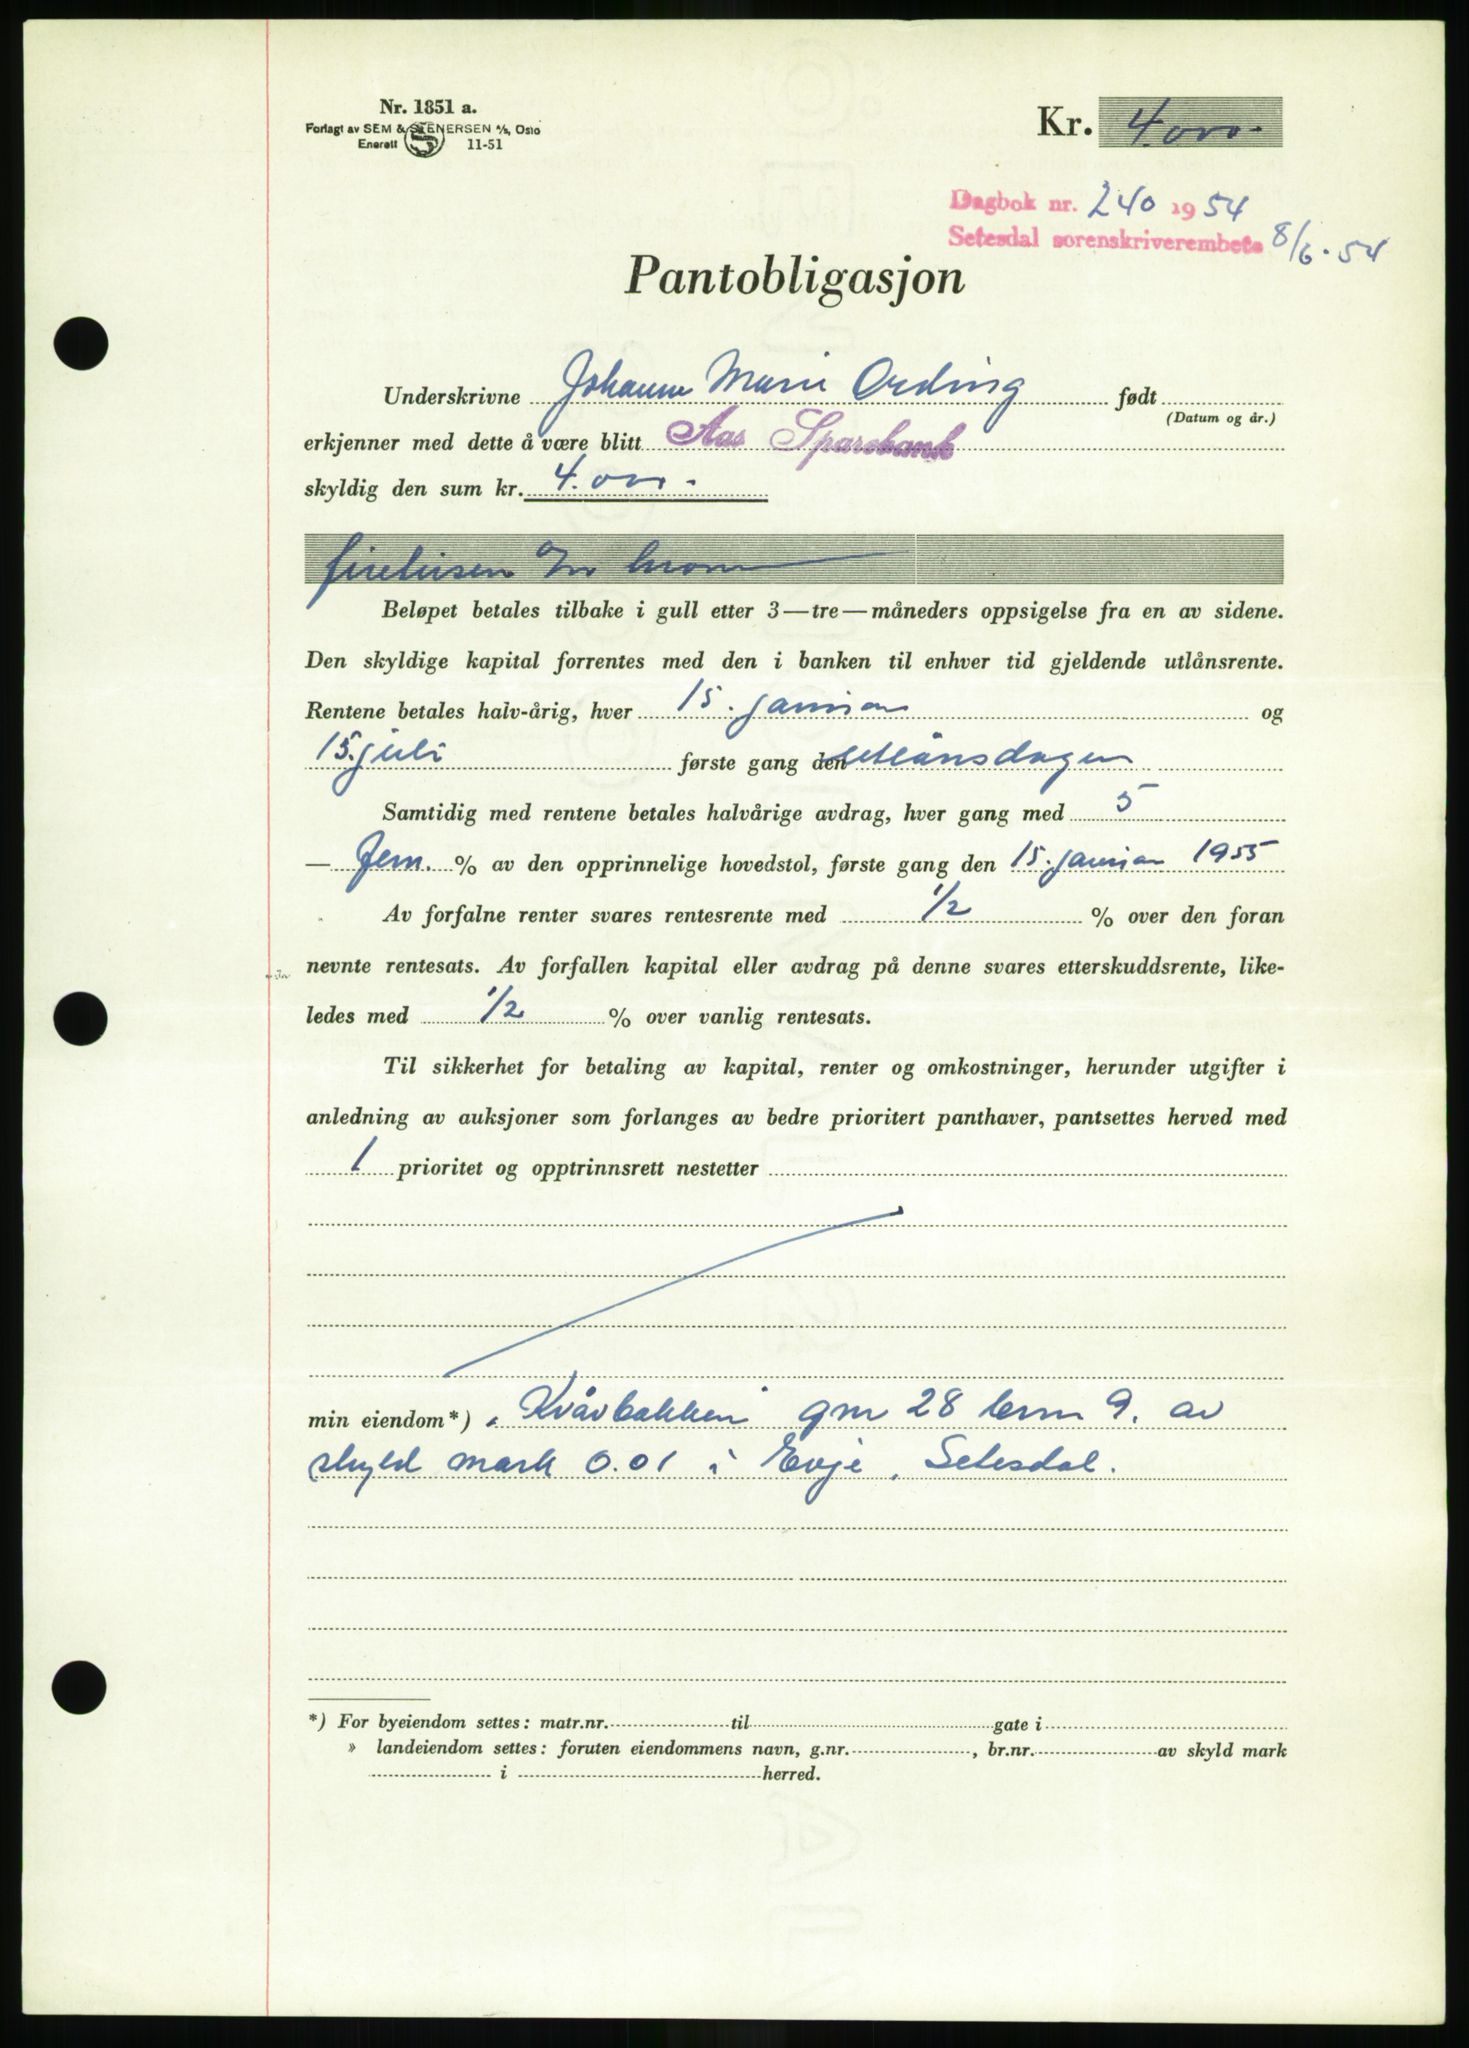 Nr. 1851 a.
Forlagt av SEM & STENERSEN A/s, Oslo
Enerett 11-51
Kr. 4.000.-
Dagbok nr. 240 1954
Setesdal sorenskriverembete 8/6.54
Pantobligasjon
Underskrivne Johanne Marie Ording født
(Datum og år.)
erkjenner med dette å være blitt Aas Sparebank
skyldig den sum kr. 4.000.-
firetusen
Beløpet betales tilbake i gull etter 3—tre—måneders oppsigelse fra en av sidene.
Den skyldige kapital forrentes med den i banken til enhver tid gjeldende utlånsrente.
Rentene betales halv-årig, hver 15. januar og
15. juli første gang den utlånsdagen
Samtidig med rentene betales halvårige avdrag, hver gang med 5
— fem. % av den opprinnelige hovedstol, første gang den 15. januar 1955
Av forfalne renter svares rentesrente med 1/2 % over den foran
nevnte rentesats. Av forfallen kapital eller avdrag på denne svares etterskuddsrente, like-
ledes med 1/2 % over vanlig rentesats.
Til sikkerhet for betaling av kapital, renter og omkostninger, herunder utgifter i
anledning av auksjoner som forlanges av bedre prioritert panthaver, pantsettes herved med
1 prioritet og opptrinnsrett nestetter
min eiendom*) "Kvåvbakken" gnr 28 brnr 9. av
skyld mark 0.01 i Evje, Setesdal.
*) For byeiendom settes: matr.nr. til gate i
» landeiendom settes: foruten eiendommens navn, g.nr. , br.nr. av skyld mark
i herred.